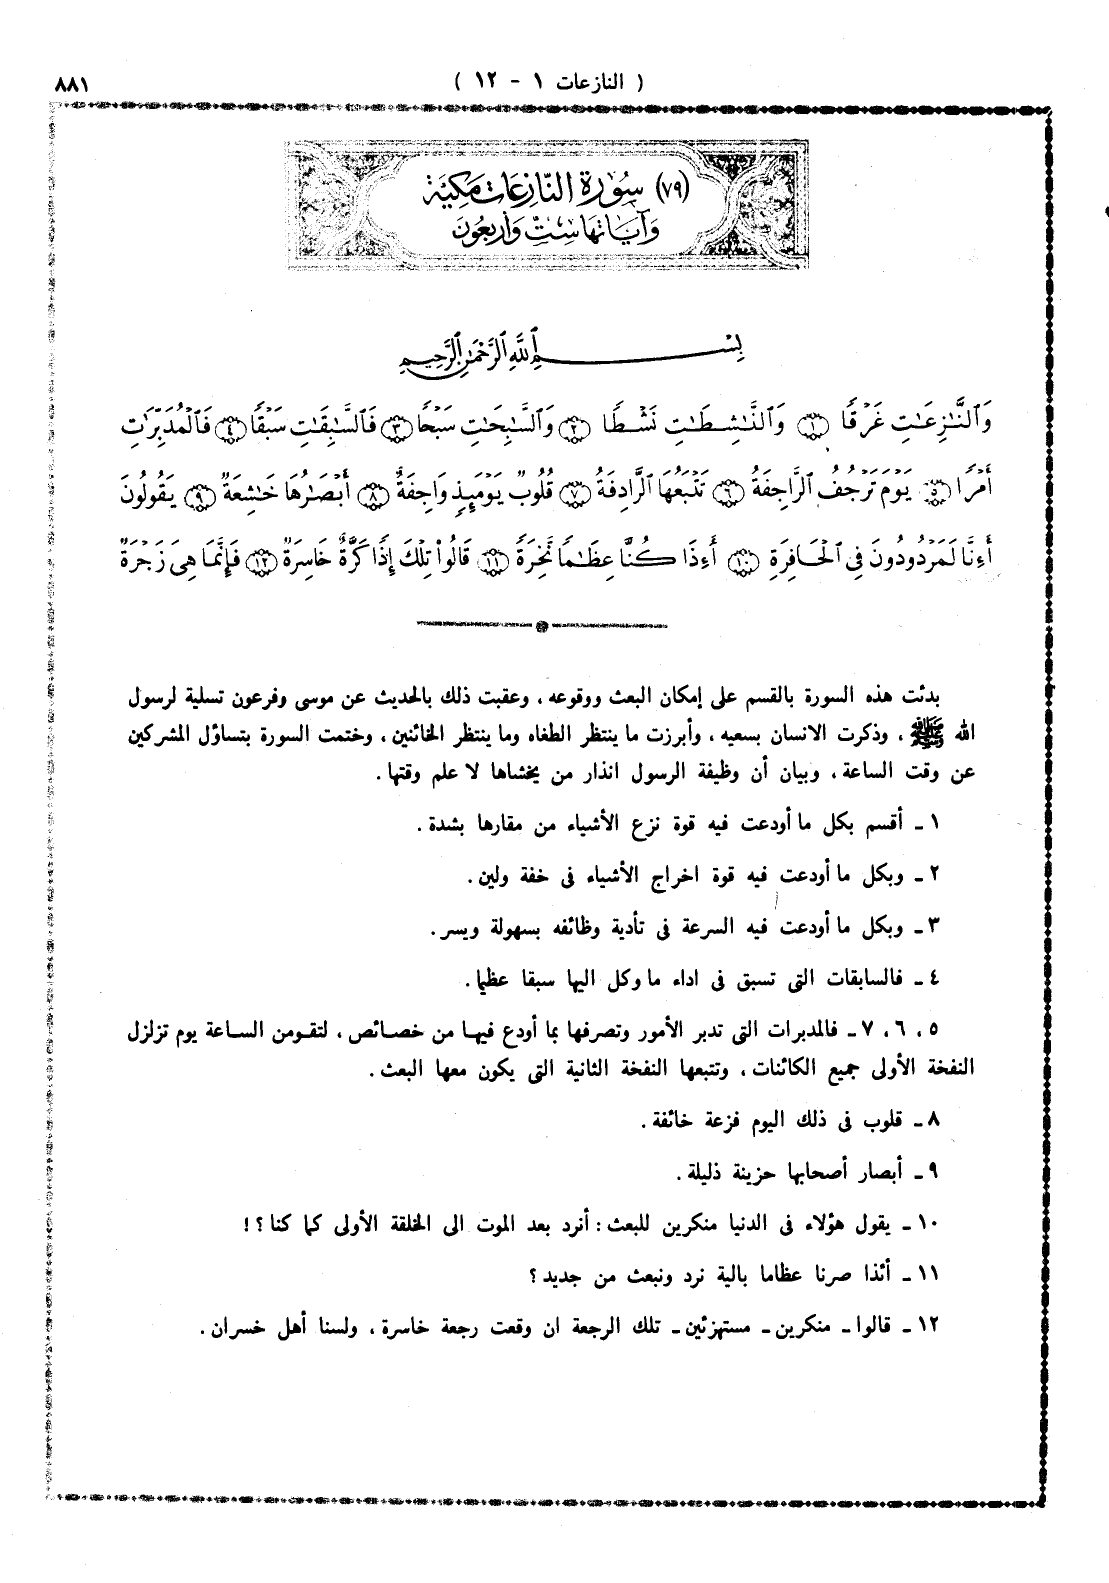 ( النازعات ١ - ١٢ )
٨٨١
(٧٩) سُورَة النَّازِعَات مَكِيَّة
وَآيَاتُهَا سِتٌّ وَأَرْبَعُونَ
بِسْمِ ٱللَّهِ ٱلرَّحْمَٰنِ ٱلرَّحِيمِ
وَٱلنَّٰزِعَٰتِ غَرْقًا ۝١ وَٱلنَّٰشِطَٰتِ نَشْطًا ۝٢ وَٱلسَّٰبِحَٰتِ سَبْحًا ۝٣ فَٱلسَّٰبِقَٰتِ سَبْقًا ۝٤ فَٱلْمُدَبِّرَٰتِ
أَمْرًا ۝٥ يَوْمَ تَرْجُفُ ٱلرَّاجِفَةُ ۝٦ تَتْبَعُهَا ٱلرَّادِفَةُ ۝٧ قُلُوبٌ يَوْمَئِذٍ وَاجِفَةٌ ۝٨ أَبْصَٰرُهَا خَٰشِعَةٌ ۝٩ يَقُولُونَ
أَءِنَّا لَمَرْدُودُونَ فِى ٱلْحَافِرَةِ ۝١٠ أَءِذَا كُنَّا عِظَٰمًا نَّخِرَةً ۝١١ قَالُوا۟ تِلْكَ إِذًا كَرَّةٌ خَاسِرَةٌ ۝١٢ فَإِنَّمَا هِىَ زَجْرَةٌ
بدئت هذه السورة بالقسم على إمكان البعث ووقوعه ، وعقبت ذلك بالحديث عن موسى وفرعون تسلية لرسول
الله ﷺ ، وذكرت الانسان بسعيه ، وأبرزت ما ينتظر الطغاه وما ينتظر الخائنين ، وختمت السورة بتساؤل المشركين
عن وقت الساعة ، وبيان أن وظيفة الرسول انذار من يخشاها لا علم وقتها .
١ ـ أقسم بكل ما أودعت فيه قوة نزع الأشياء من مقارها بشدة .
٢ ـ وبكل ما أودعت فيه قوة اخراج الأشياء فى خفة ولين .
٣ ـ وبكل ما أودعت فيه السرعة فى تأدية وظائفه بسهولة ويسر .
٤ ـ فالسابقات التى تسبق فى اداء ما وكل اليها سبقا عظيما .
٥ ، ٦ ، ٧ ـ فالمدبرات التى تدبر الأمور وتصرفها بما أودع فيها من خصائص ، لتقومن الساعة يوم تزلزل
النفخة الأولى جميع الكائنات ، وتتبعها النفخة الثانية التى يكون معها البعث .
٨ ـ قلوب فى ذلك اليوم فزعة خائفة .
٩ ـ أبصار أصحابها حزينة ذليلة .
١٠ ـ يقول هؤلاء فى الدنيا منكرين للبعث : أنرد بعد الموت الى الخلقة الأولى كما كنا ؟ !
١١ ـ أئذا صرنا عظاما بالية نرد ونبعث من جديد ؟
١٢ ـ قالوا ـ منكرين ـ مستهزئين ـ تلك الرجعة ان وقعت رجعة خاسرة ، ولسنا أهل خسران .